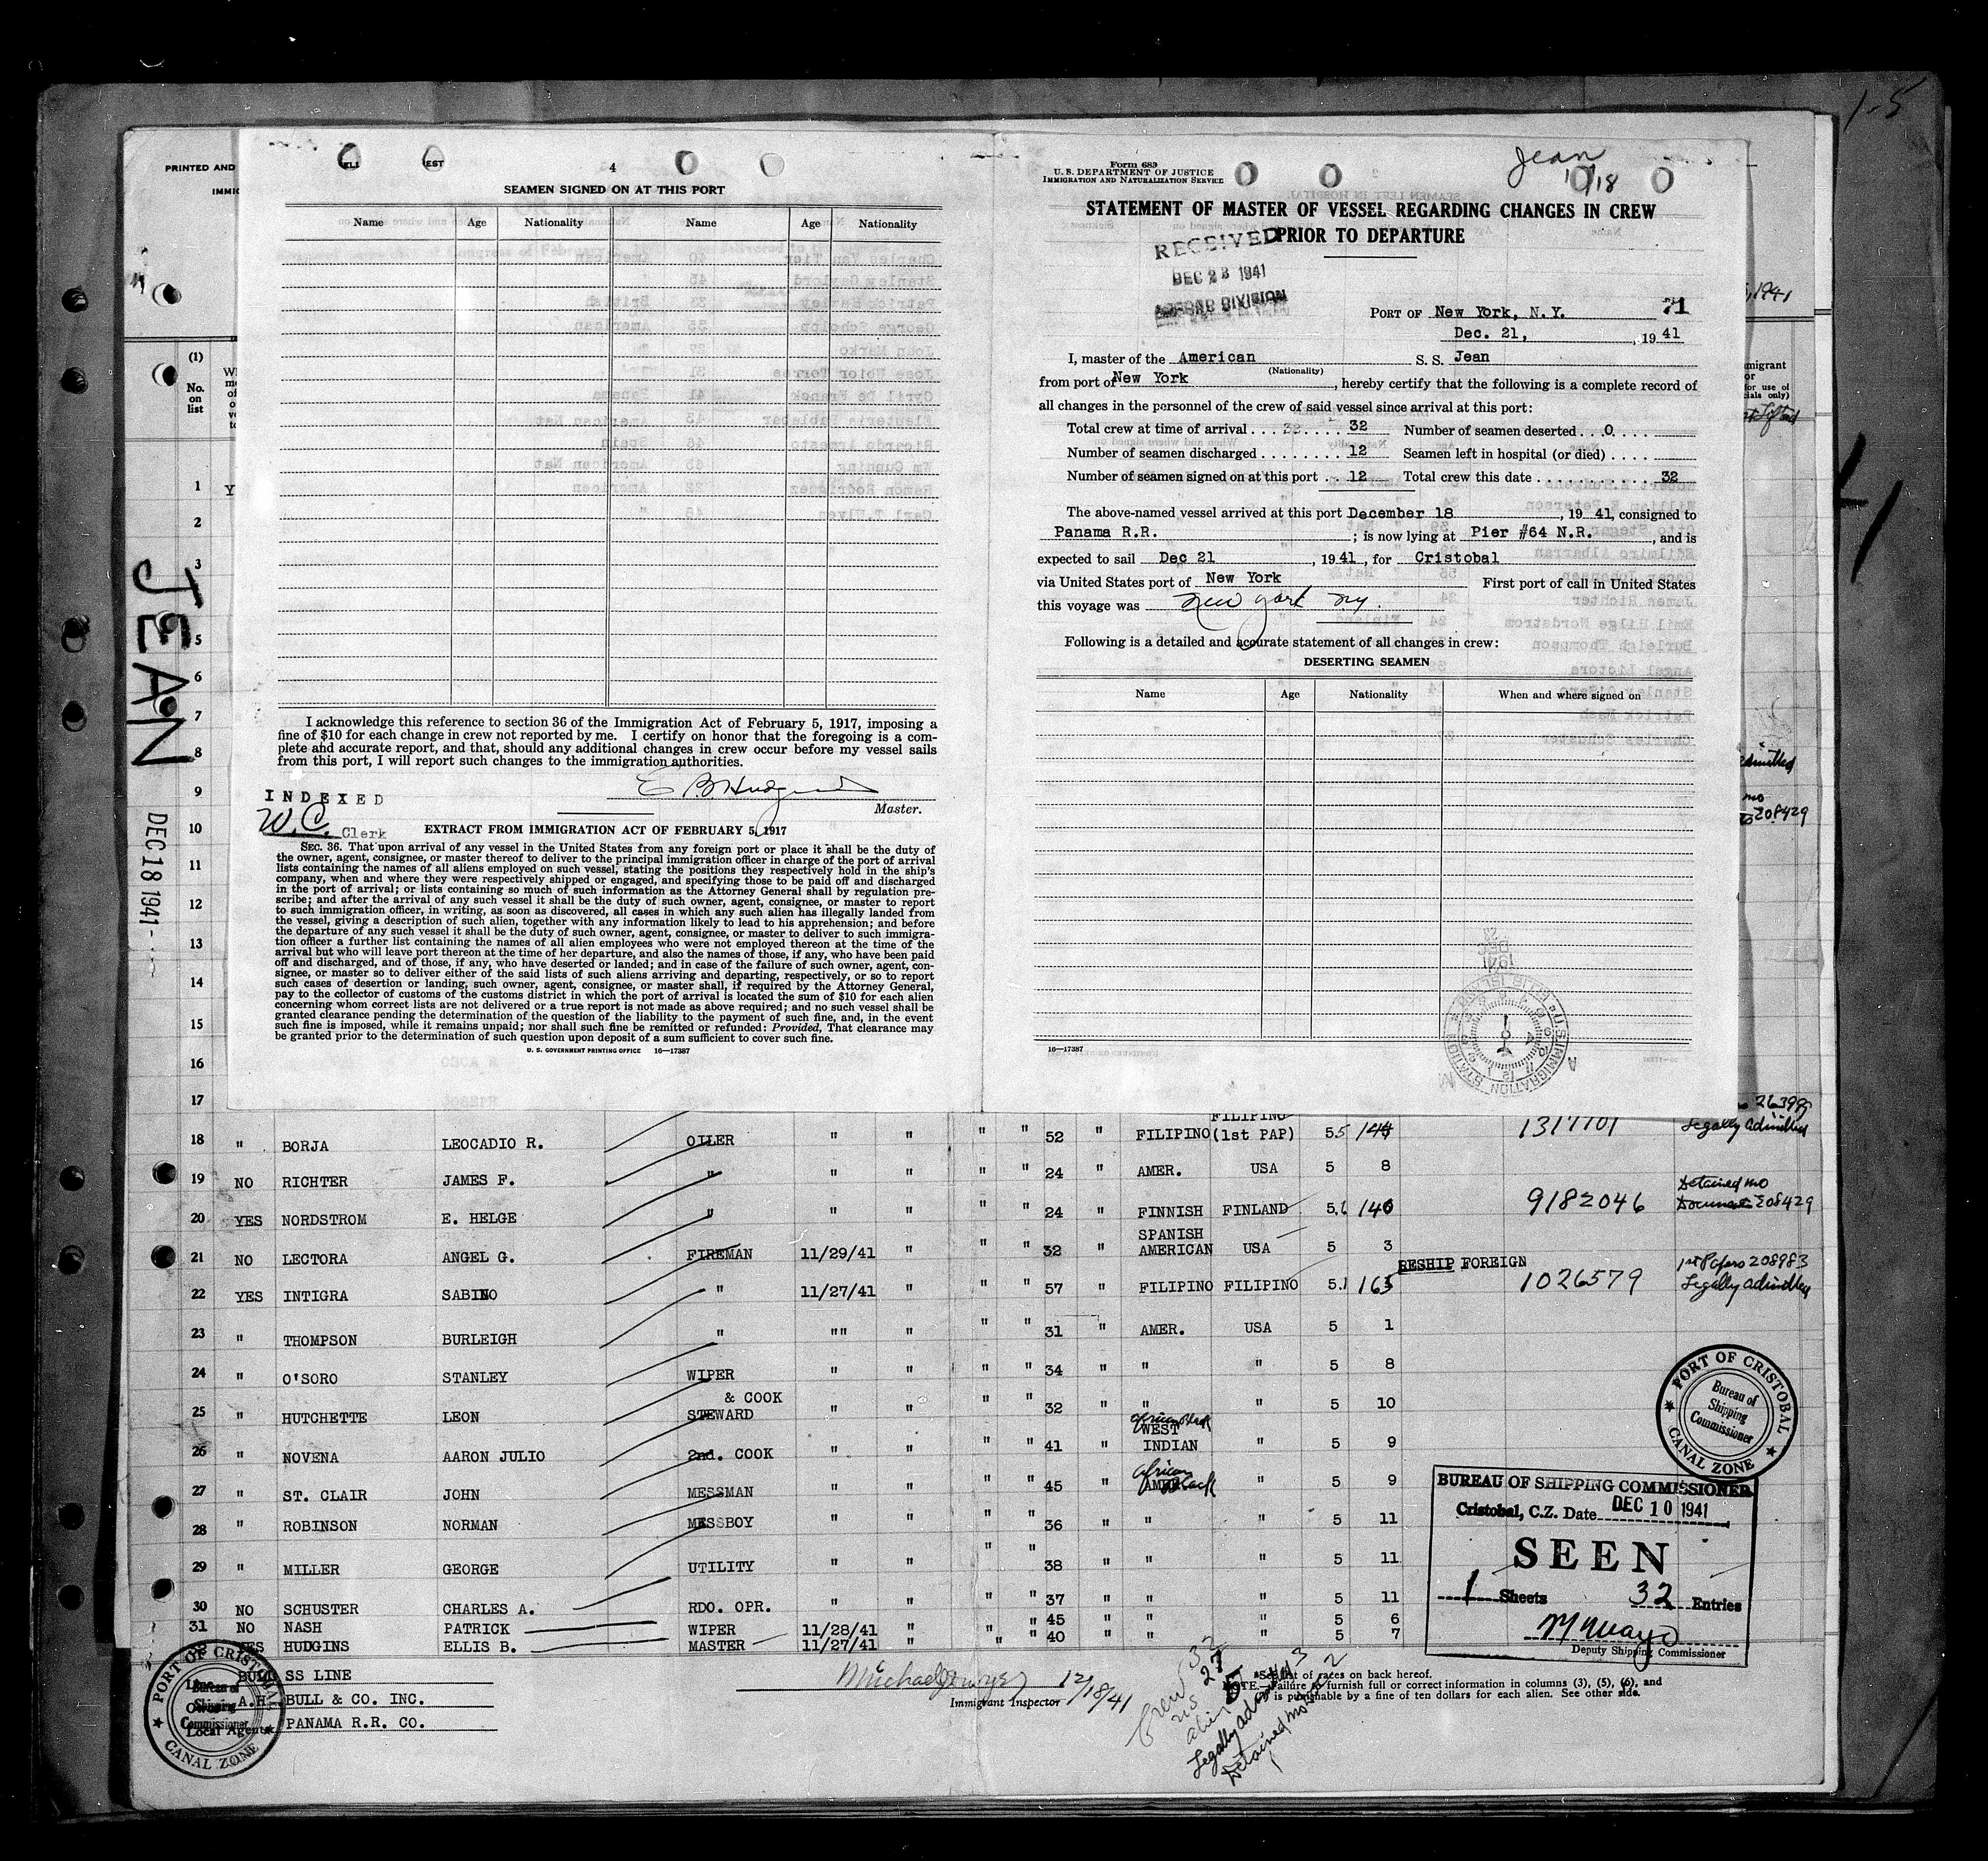 1-5
PRINTED AND
IMMIG
(1)
No.
on
list
JEAN
DEC 18 1941
4
SEAMEN SIGNED ON AT THIS PORT
Name Age Nationality Name Age Nationality
I acknowledge this reference to section 36 of the Immigration Act of February 5, 1917, imposing a
fine of $10 for each change in crew not reported by me. I certify on honor that the foregoing is a com-
plete and accurate report, and that, should any additional changes in crew occur before my vessel sails
from this port, I will report such changes to the immigration authorities.
INDEXED
W.C. Clerk
Master.
EXTRACT FROM IMMIGRATION ACT OF FEBRUARY 5, 1917
SEC. 36. That upon arrival of any vessel in the United States from any foreign port or place it shall be the duty of
the owner, agent, consignee, or master thereof to deliver to the principal immigration officer in charge of the port of arrival
lists containing the names of all aliens employed on such vessel, stating the positions they respectively hold in the ship's
company, when and where they were respectively shipped or engaged, and specifying those to be paid off and discharged
in the port of arrival; or lists containing so much of such information as the Attorney General shall by regulation pre-
scribe; and after the arrival of any such vessel it shall be the duty of such owner, agent, consignee, or master to report
to such immigration officer, in writing, as soon as discovered, all cases in which any such alien has illegally landed from
the vessel, giving a description of such alien, together with any information likely to lead to his apprehension; and before
the departure of any such vessel it shall be the duty of such owner, agent, consignee, or master to deliver to such immigra-
tion officer a further list containing the names of all alien employees who were not employed thereon at the time of the
arrival but who will leave port thereon at the time of her departure, and also the names of those, if any, who have been paid
off and discharged, and of those, if any, who have deserted or landed; and in case of the failure of such owner, agent, con-
signee, or master so to deliver either of the said lists of such aliens arriving and departing, respectively, or so to report
such cases of desertion or landing, such owner, agent, consignee, or master shall, if required by the Attorney General,
pay to the collector of customs of the customs district in which the port of arrival is located the sum of $10 for each alien
concerning whom correct lists are not delivered or a true report is not made as above required; and no such vessel shall be
granted clearance pending the determination of the question of the liability to the payment of such fine, and, in the event
such fine is imposed, while it remains unpaid; nor shall such fine be remitted or refunded: Provided, That clearance may
be granted prior to the determination of such question upon deposit of a sum sufficient to cover such fine.
U. S. GOVERNMENT PRINTING OFFICE 16-17387
Form 689
U. S. DEPARTMENT OF JUSTICE
IMMIGRATION AND NATURALIZATION SERVICE
Jean
18
STATEMENT OF MASTER OF VESSEL REGARDING CHANGES IN CREW
PRIOR TO DEPARTURE
RECEIVED
DEC 23 1941
RECORD DIVISION
PORT OF New York, N.Y. 71
Dec. 21, , 19 41
I, master of the American S. S. Jean
(Nationality)
from port of New York , hereby certify that the following is a complete record of
all changes in the personnel of the crew of said vessel since arrival at this port:
Total crew at time of arrival 32 32 Number of seamen deserted 0
Number of seamen discharged 12 Seamen left in hospital (or died)
Number of seamen signed on at this port 12 Total crew this date 32
The above-named vessel arrived at this port December 18 , 19 41, consigned to
Panama R.R. ; is now lying at Pier #64 N.R. , and is
expected to sail Dec 21 , 19 41, for Cristobal
via United States port of New York First port of call in United States
this voyage was New York N.Y.
Following is a detailed and accurate statement of all changes in crew:
DESERTING SEAMEN
Name Age Nationality When and where signed on
16-17387
1 Y
2
3
5
6
7
8
9
10
11
12
13
14
15
16
17
18 " BORJA LEOCADIO R. OILER " " " " 52 " FILIPINO FILIPINO (1st PAP) 5 5 144 1317701 Legally admitted
19 NO RICHTER JAMES F. " " " " " 24 " AMER. USA 5 8
20 YES NORDSTROM E. HELGE " " " " " 24 " FINNISH FINLAND 5.6 140 9182046 Detained no Documents 208429
21 NO LECTORA ANGEL G. FIREMAN 11/29/41 " " " 32 " SPANISH AMERICAN USA 5 3
22 YES INTIGRA SABINO " 11/27/41 " " " 57 " FILIPINO FILIPINO 5.1 163 RESHIP FOREIGN 1026579 1st Papers 208983 Legally admitted
23 " THOMPSON BURLEIGH " "" " " " 31 " AMER. USA 5 1
24 " O'SORO STANLEY WIPER " " " " 34 " " " 5 8
25 " HUTCHETTE LEON & COOK STEWARD " " " " 32 " " " 5 10
26 " NOVENA AARON JULIO 2nd. COOK " " " " 41 " African Black WEST INDIAN " 5 9
27 " ST. CLAIR JOHN MESSMAN " " " " 45 " African Black " 5 9
28 " ROBINSON NORMAN MESSBOY " " " " 36 " " " 5 11
29 " MILLER GEORGE UTILITY " " " " 38 " " " 5 11
30 NO SCHUSTER CHARLES A. RDO. OPR. " " " " 37 " " " 5 11
31 NO NASH PATRICK WIPER 11/28/41 " " 45 " " " 5 6
32 YES HUDGINS ELLIS B. MASTER 11/27/41 " " " 40 " " " 5 7
BULL SS LINE
A.H. BULL & CO. INC.
Local Agents PANAMA R.R. CO.
12/18/41
Immigrant Inspector
Crew 32
US 27
Alien 5
Legally admitted 3
Detained no Doc 2
*See list of races on back hereof.
NOTE.—Failure to furnish full or correct information in columns (3), (5), (6), and
is punishable by a fine of ten dollars for each alien. See other side.
PORT OF CRISTOBAL
Bureau of
Shipping
Commissioner
CANAL ZONE
PORT OF CRISTOBAL
Bureau of
Shipping
Commissioner
CANAL ZONE
BUREAU OF SHIPPING COMMISSIONER
Cristobal, C.Z. Date DEC 10 1941
SEEN
1 Sheets 32 Entries
Deputy Shipping Commissioner